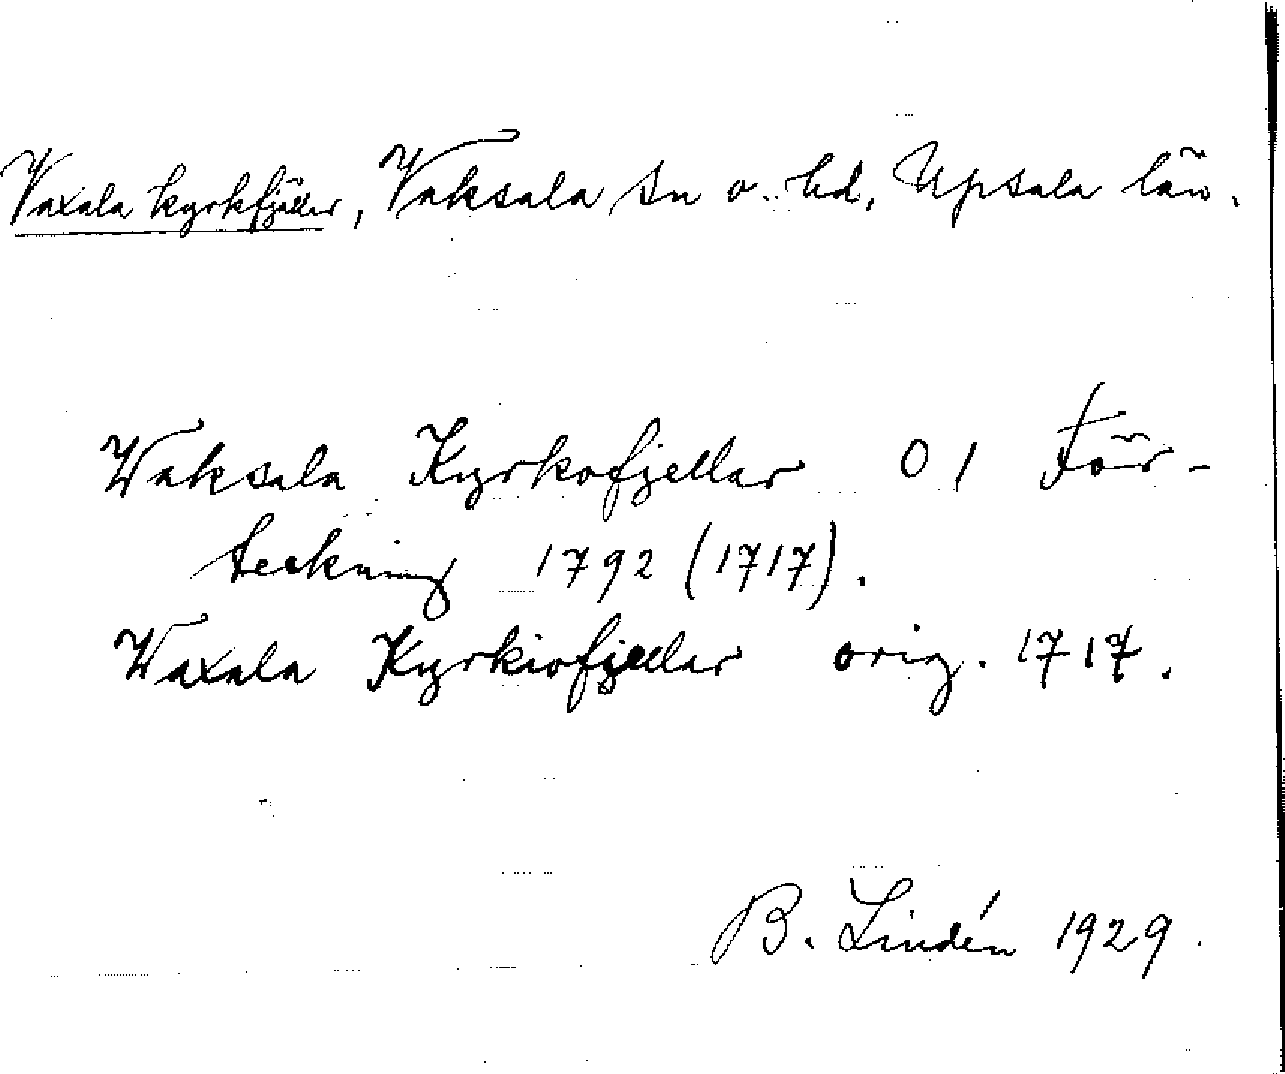 Vaxala kyrkfjäller, Vaksala sn o. hd, Upsala län.
Waksala Kyrkofjellar 01 För-
teckning 1792 (1717).
Waxala Kyrkiofjellar orig. 1717.
B. Lindén 1929.